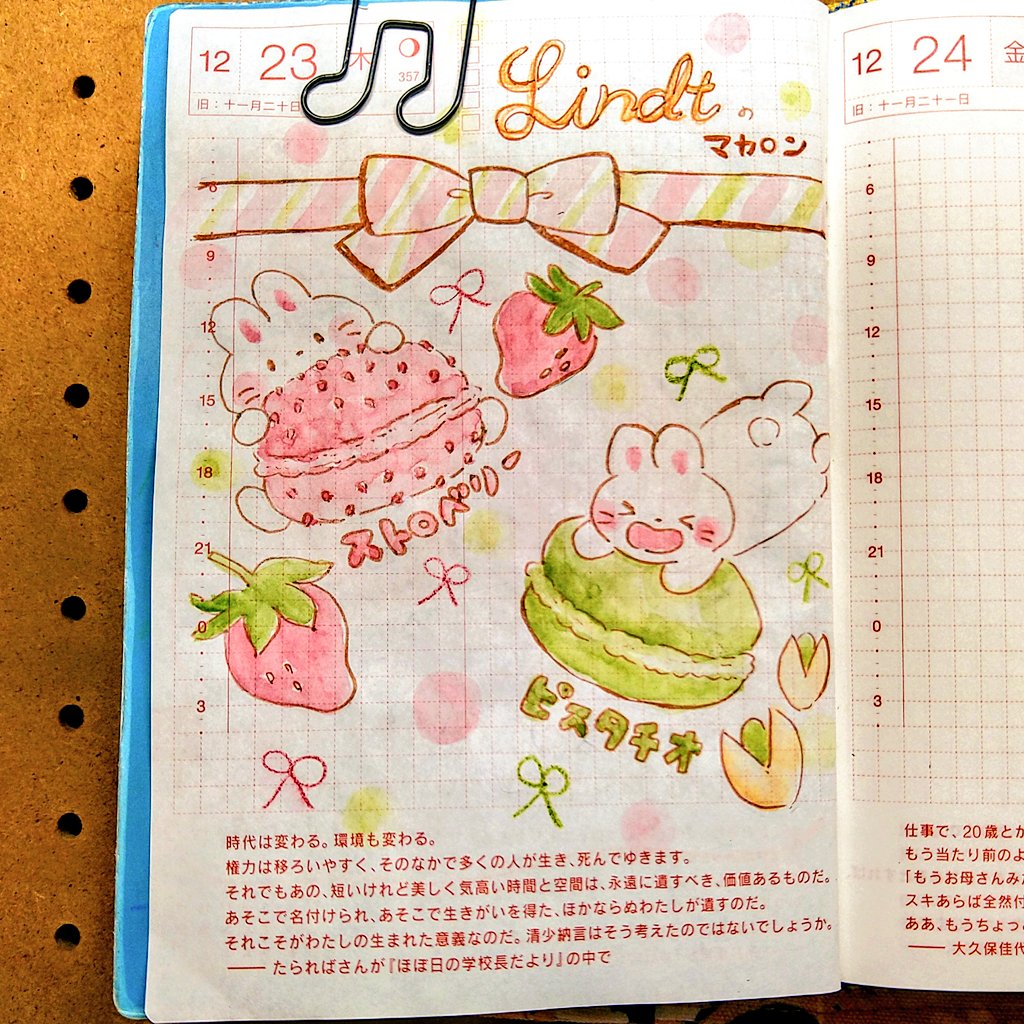 12 23 木
357
旧：十一月二十日
Lindtの
マカロン
6
9
12
15
18
21
0
3
ストロベリー
ピスタチオ
時代は変わる。環境も変わる。
権力は移ろいやすく、そのなかで多くの人が生き、死んでゆきます。
それでもあの、短いけれど美しく気高い時間と空間は、永遠に遺すべき、価値あるものだ。
あそこで名付けられ、あそこで生きがいを得た、ほかならぬわたしが遺すのだ。
それこそがわたしの生まれた意義なのだ。清少納言はそう考えたのではないでしょうか。
── たらればさんが『ほぼ日の学校長だより』の中で
12 24 金
旧：十一月二十一日
6
9
12
15
18
21
0
3
仕事で、20歳とか
もう当たり前のよ
「もうお母さんみた
スキあらば全然付
ああ、もうちょっと
── 大久保佳代